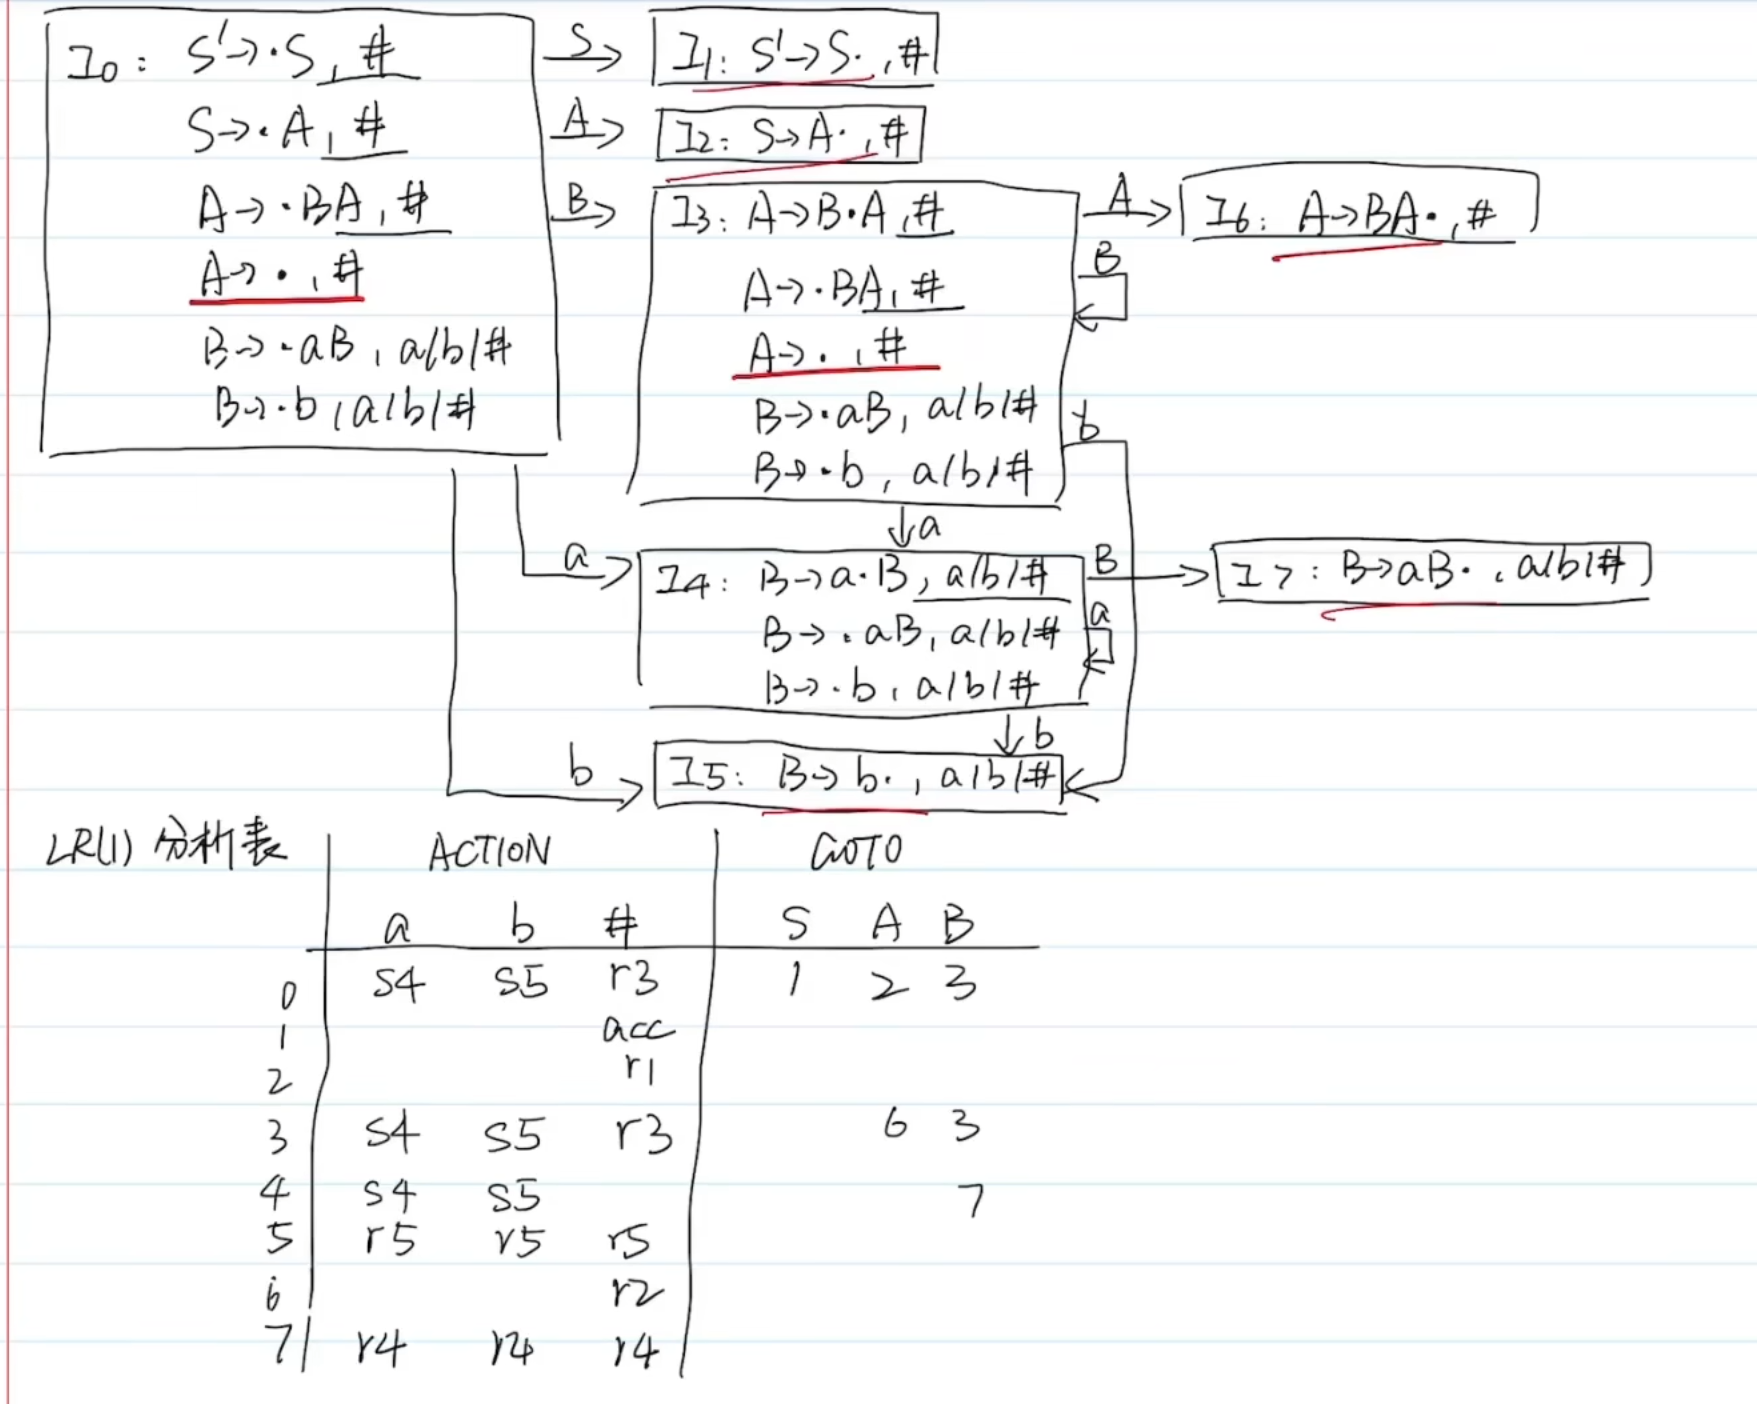 I0: S'→·S, #
S→·A, #
A→·BA, #
A→·, #
B→·aB, a/b/#
B→·b, a/b/#
S
I1: S'→S·, #
A
I2: S→A·, #
B
I3: A→B·A, #
A→·BA, #
A→·, #
B→·aB, a/b/#
B→·b, a/b/#
A
I6: A→BA·, #
B
b
a
a
I4: B→a·B, a/b/#
B→·aB, a/b/#
B→·b, a/b/#
B
I7: B→aB·, a/b/#
a
b
b
I5: B→b·, a/b/#
LR(1) 分析表 ACTION GOTO
a b # S A B
0 s4 s5 r3 1 2 3
1 acc
2 r1
3 s4 s5 r3 6 3
4 s4 s5 7
5 r5 r5 r5
6 r2
7 r4 r4 r4